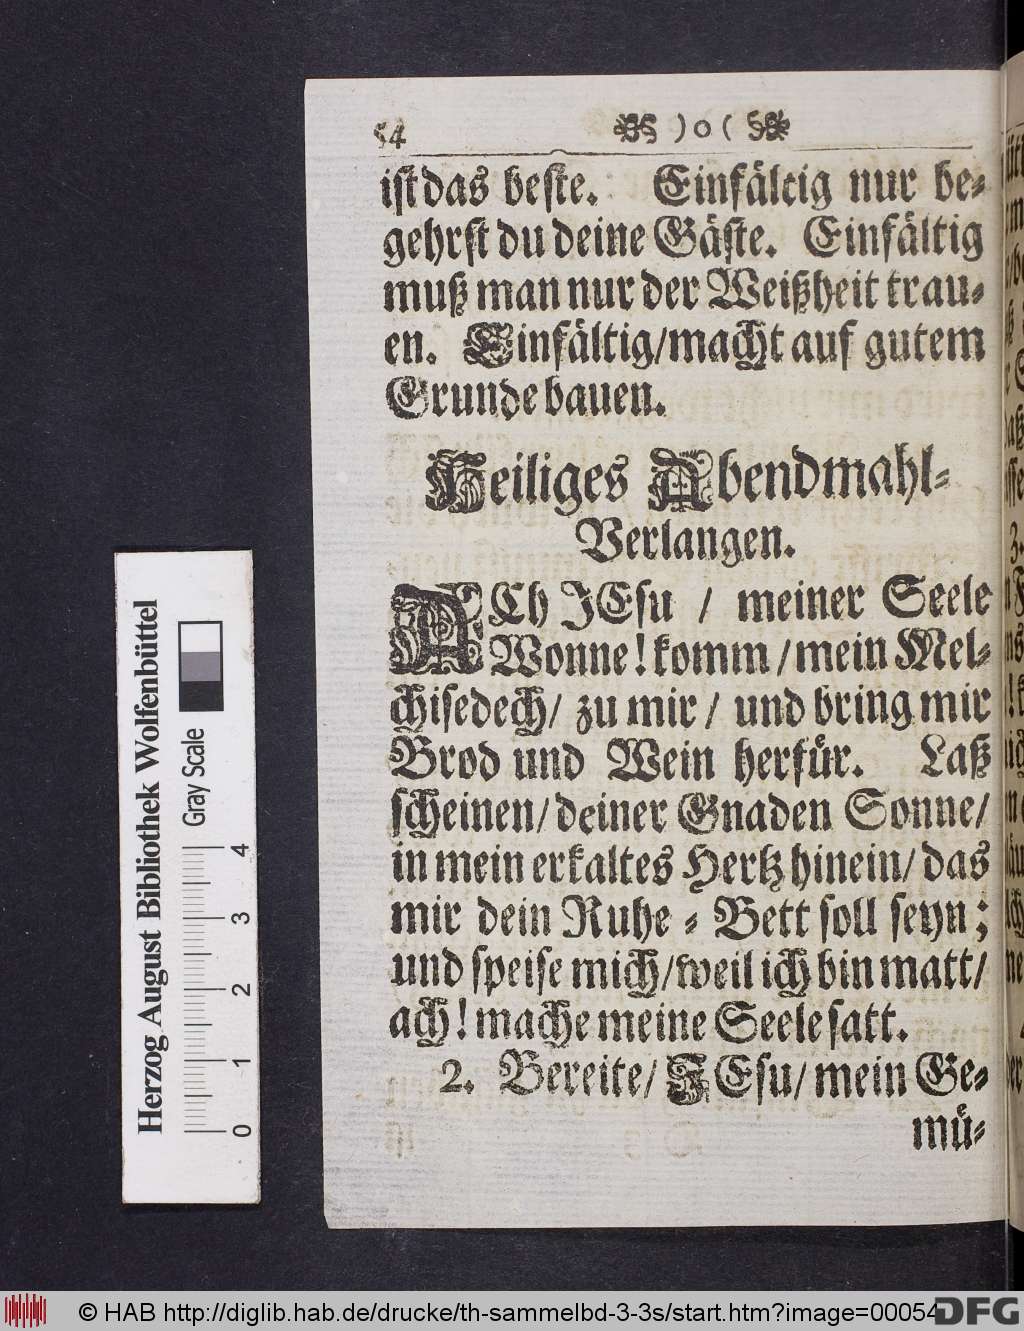 54 )o(
ist das beste. Einfältig nur be⸗
gehrst du deine Gäste. Einfältig
muß man nur der Weißheit trau⸗
en. Einfältig/macht auf gutem
Grunde bauen.
Heiliges Abendmahl⸗
Verlangen.
ACh JEsu / meiner Seele
Wonne! komm / mein Mel⸗
chisedech/ zu mir / und bring mir
Brod und Wein herfür. Laß
scheinen/ deiner Gnaden Sonne/
in mein erkaltes Hertz hinein/ das
mir dein Ruhe ⸗ Bett soll seyn;
und speise mich/weil ich bin matt/
ach! mache meine Seele satt.
2. Bereite/ JEsu/ mein Ge⸗
mü⸗
Herzog August Bibliothek Wolfenbüttel
Gray Scale
0 1 2 3 4
© HAB http://diglib.hab.de/drucke/th-sammelbd-3-3s/start.htm?image=00054
DFG